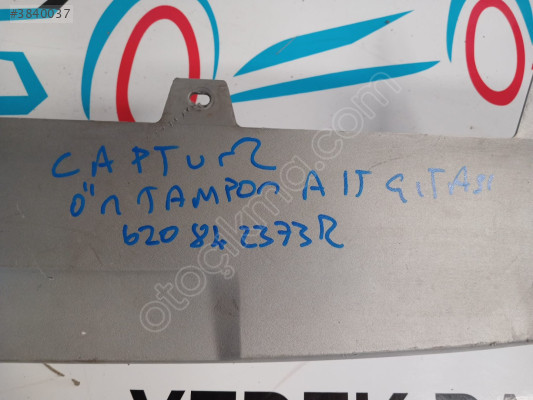 #3840037
CAPTUR
ÖN TAMPON ALT ÇITASI
620 84 2373R
otoçıkma.com
YEDEK PA